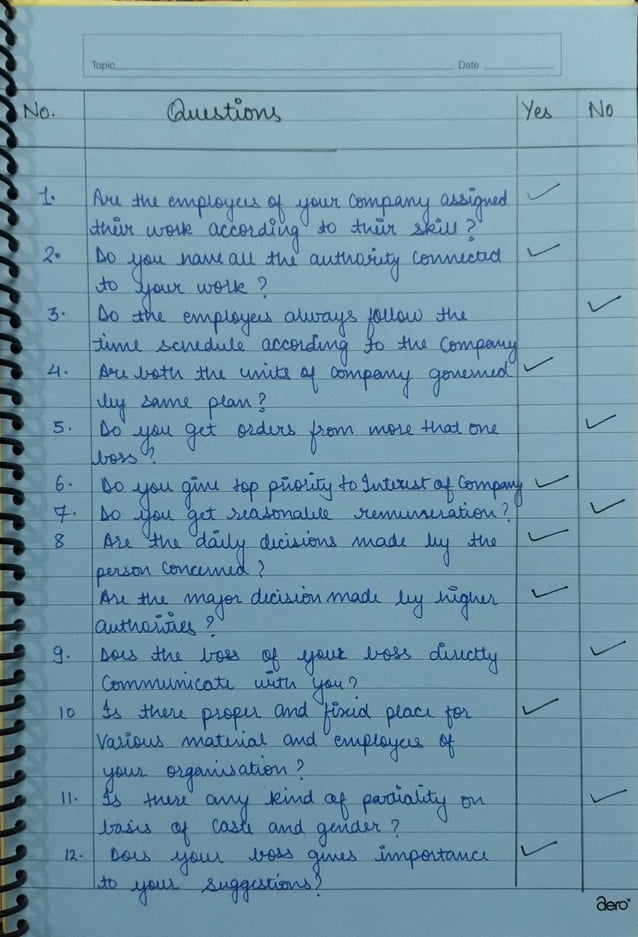 Topic Date
No. Questions Yes No
1. Are the employees of your company assigned
their work according to their skill?
2. Do you have all the authority connected
to your work?
3. Do the employees always follow the
time schedule according to the Company
4. Are both the units of company governed
by same plan?
5. Do you get orders from more that one
boss?
6. Do you give top priority to Interest of Company
7. Do you get reasonable remuneration?
8 Are the daily decisions made by the
person concerned?
Are the major decision made by higher
authorities?
9. Does the boss of your boss directly
Communicate with you?
10 Is there proper and fixed place for
Various material and employees of
your organisation?
11. Is there any kind of partiality on
basis of caste and gender?
12. Does your boss gives importance
to your suggestions?
aero